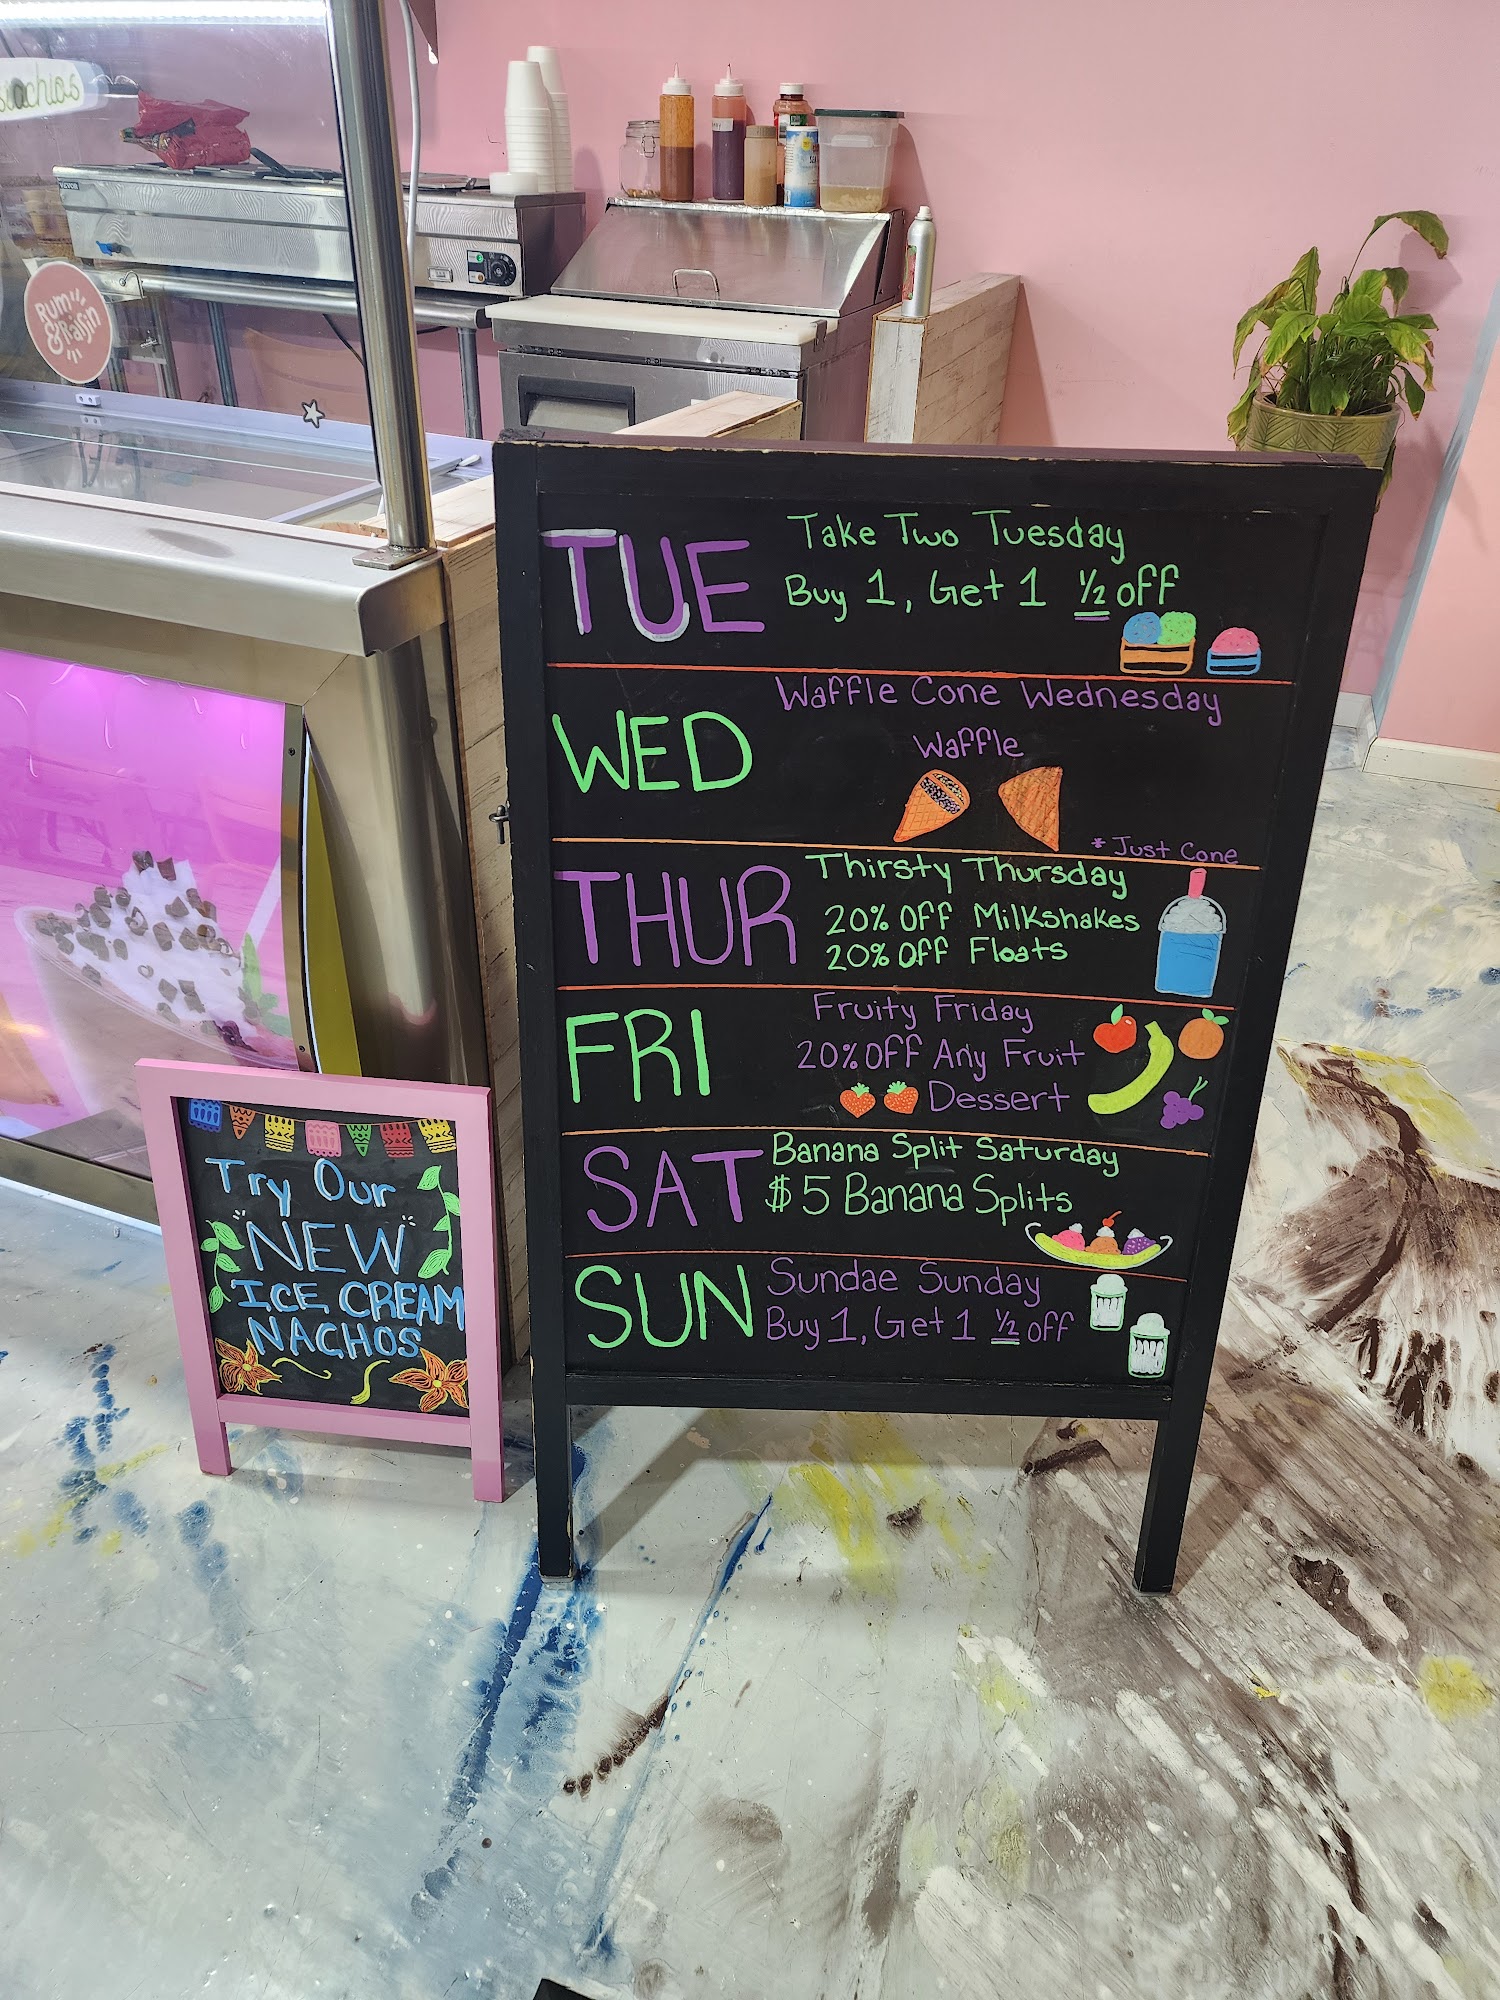 Rum
& Raisin
TUE
Take Two Tuesday
Buy 1, Get 1 1/2 off
WED
Waffle Cone Wednesday
Waffle
* Just Cone
THUR
Thirsty Thursday
20% OFF Milkshakes
20% OFF Floats
FRI
Fruity Friday
20% OFF Any Fruit
Dessert
SAT
Banana Split Saturday
$5 Banana Splits
SUN
Sundae Sunday
Buy 1, Get 1 1/2 OFF
Try Our
"NEW"
ICE CREAM
NACHOS